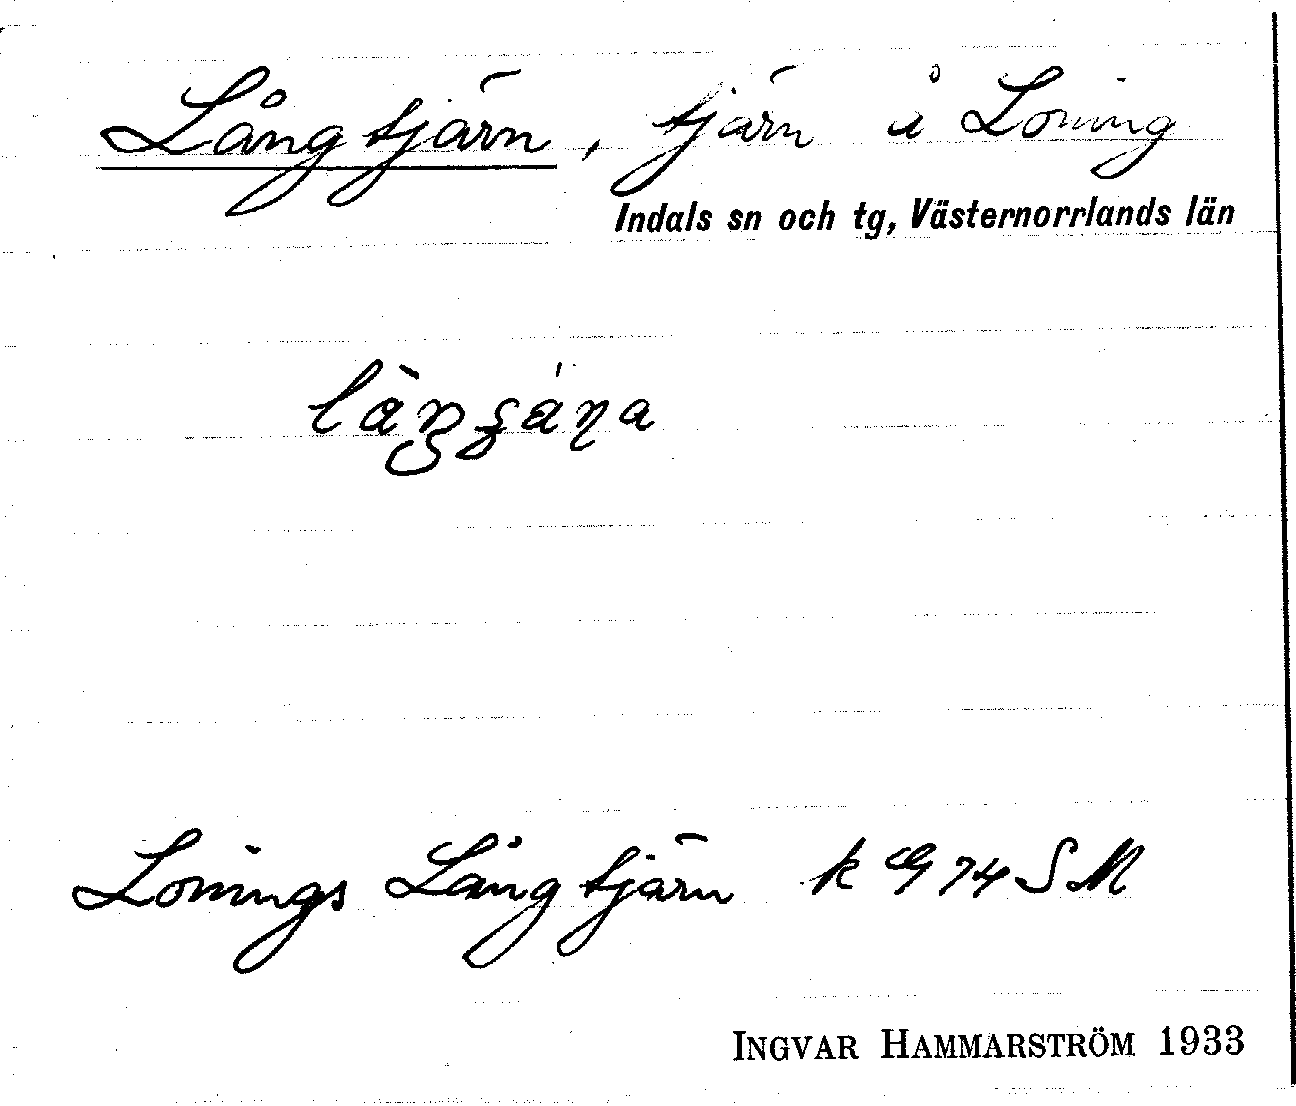 Långtjärn, tjärn å Loning
Indals sn och tg, Västernorrlands län
Lonings Långtjärn k G 74 SM
INGVAR HAMMARSTRÖM 1933